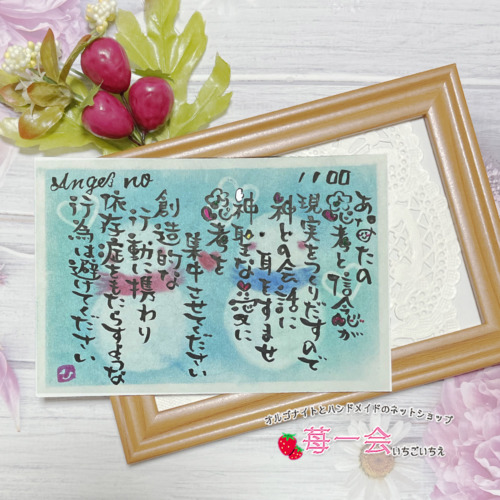 Angel no 1100
あなたの
思考と信念が
現実をつくりだすので
神との会話に
耳をすませ
神聖な愛に
思考を
集中させてください
創造的な
行動に携わり
依存症をもたらすような
行為は避けてください
ひ
オルゴナイトとハンドメイドのネットショップ
苺一会 いちごいちえ